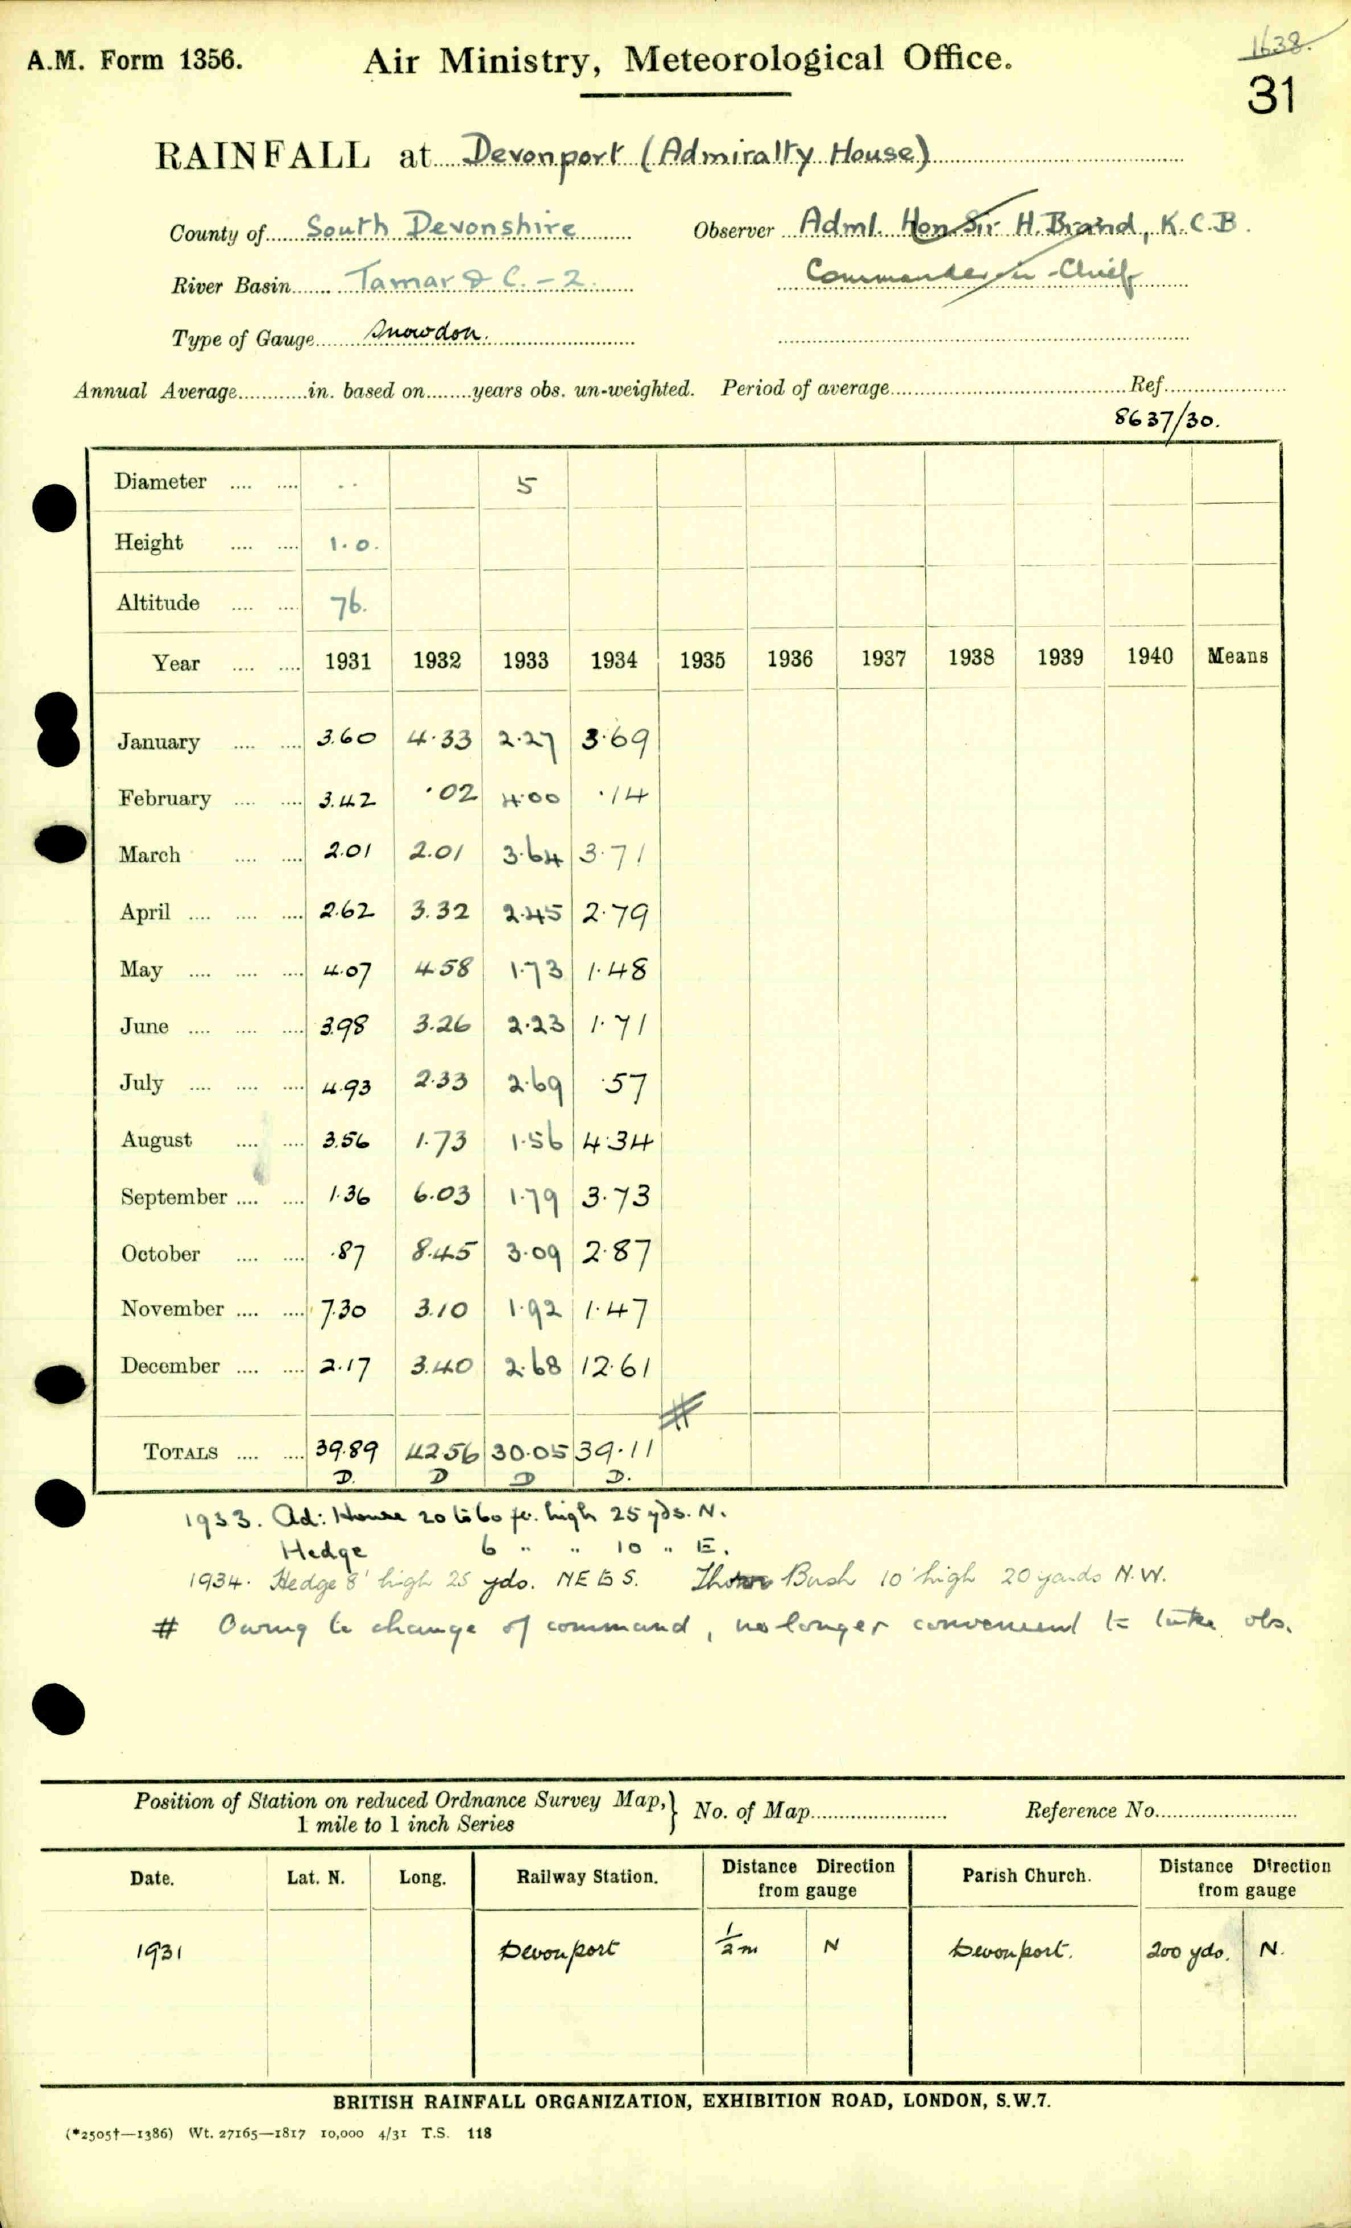 1638.
A.M. Form 1356. Air Ministry, Meteorological Office.
31
RAINFALL at Devonport (Admiralty House)
County of South Devonshire Observer Adml. Hon. Sir H. Brand, K.C.B.
River Basin Tamar & C. - 2. Commander-in-Chief
Type of Gauge Snowdon.
Annual Average in. based on years obs. un-weighted. Period of average Ref.
8637/30.
Diameter .. 5
Height 1.0.
Altitude 76.
Year 1931 1932 1933 1934 1935 1936 1937 1938 1939 1940 Means
January 3.60 4.33 2.27 3.69
February 3.42 .02 4.00 .14
March 2.01 2.01 3.64 3.71
April 2.62 3.32 2.45 2.79
May 4.07 4.58 1.73 1.48
June 3.98 3.26 2.23 1.71
July 4.93 2.33 2.69 .57
August 3.56 1.73 1.56 4.34
September 1.36 6.03 1.79 3.73
October .87 8.45 3.09 2.87
November 7.30 3.10 1.92 1.47
December 2.17 3.40 2.68 12.61
#
TOTALS 39.89 42.56 30.05 39.11
D. D D D.
1933. Ad: House 20 to 60 ft. high 25 yds. N.
Hedge 6 " " 10 " E.
1934. Hedge 8' high 25 yds. NE to S. Thorn Bush 10' high 20 yards N.W.
# Owing to change of command, no longer convenient to take obs.
Position of Station on reduced Ordnance Survey Map, } No. of Map Reference No.
1 mile to 1 inch Series
Date. Lat. N. Long. Railway Station. Distance Direction from gauge Parish Church. Distance Direction from gauge
1931 Devonport 1/2 m N Devonport. 200 yds. N.
BRITISH RAINFALL ORGANIZATION, EXHIBITION ROAD, LONDON, S.W.7.
(*2505†—1386) Wt. 27165—1817 10,000 4/31 T.S. 118